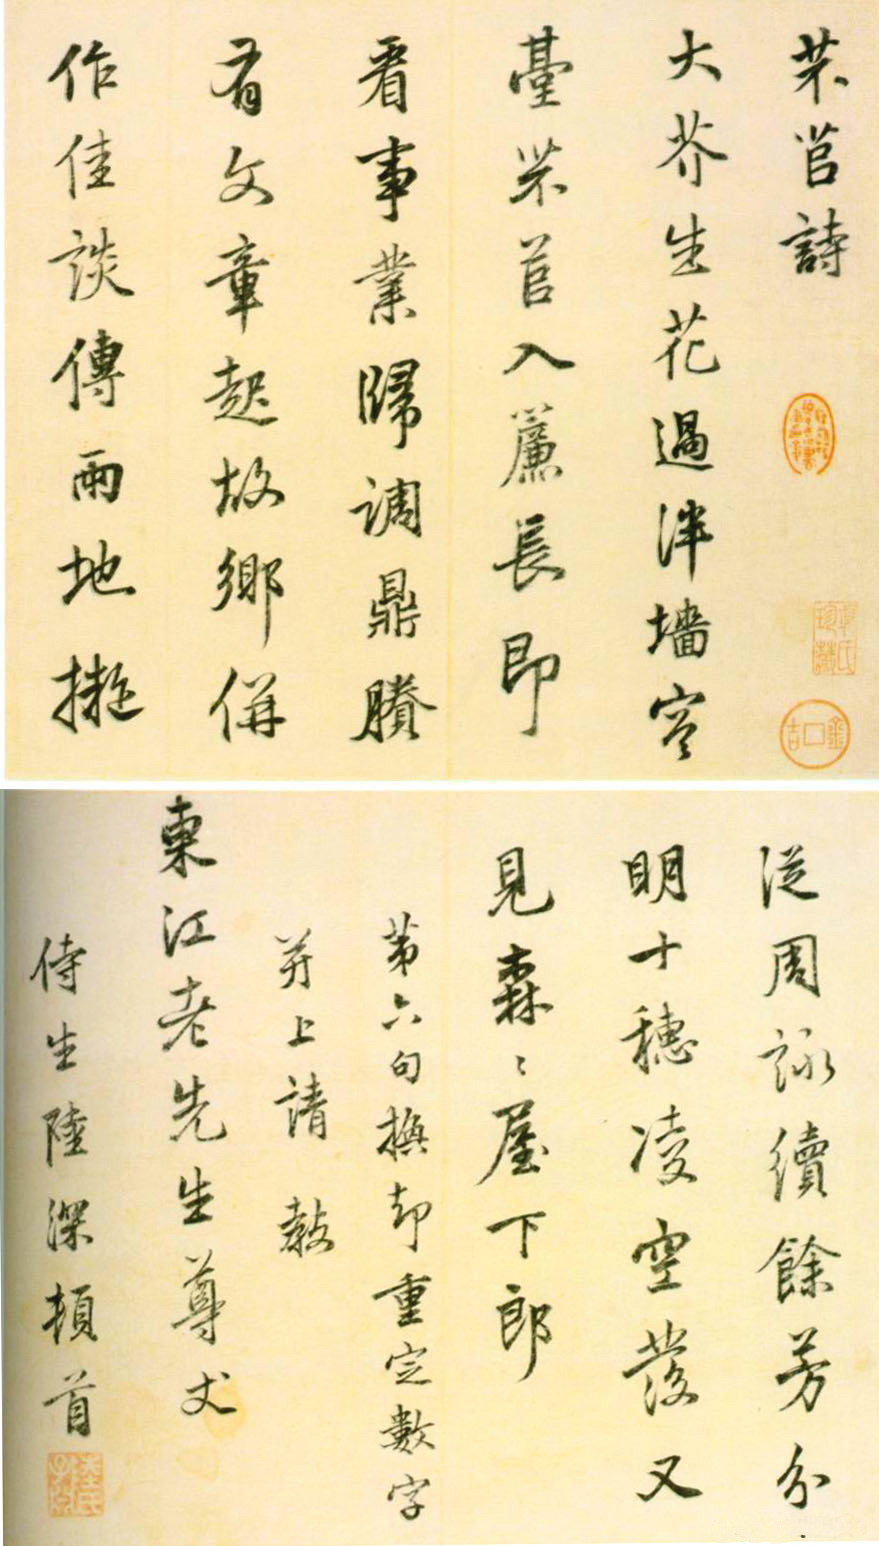 芣苢詩
大芥生花過泮墻容
臺芣苢入簾長即
看事業歸調鼎賸
有文章起故鄉併
作佳談傳兩地擬
從周詠續餘芳分
明十穗凌空發又
見森〻屋下郎
第六句却重定數字
并上請教
東江老先生尊丈
侍生陸深頓首